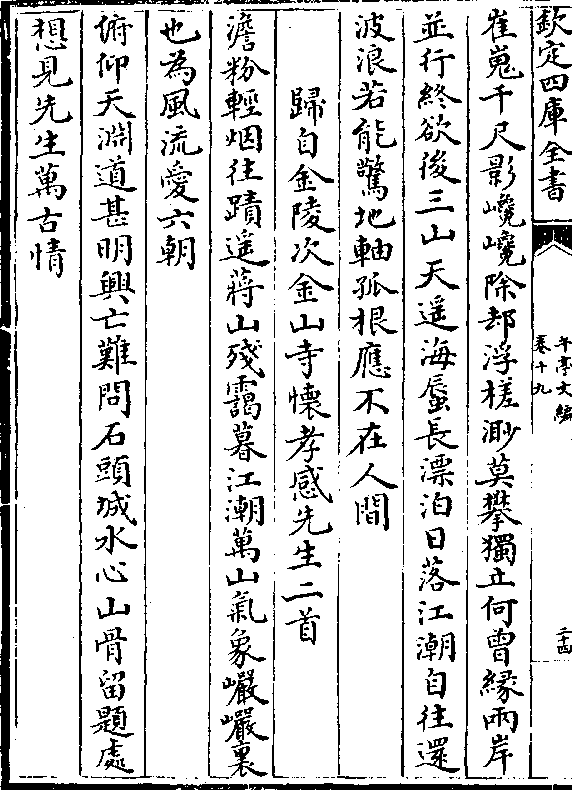 欽定四庫全書
午亭文編
卷十九
二十四
崔嵬千尺影巉巉除却浮槎渺莫攀獨立何曾緣兩岸
並行終欲後三山天遥海蜃長漂泊日落江潮自往還
波浪若能驚地軸孤根應不在人間
歸自金陵次金山寺懷孝感先生二首
澹粉輕烟往蹟遥蔣山殘靄暮江潮萬山氣象巖巖裏
也為風流愛六朝
俯仰天淵道甚明興亡難問石頭城水心山骨留題處
想見先生萬古情